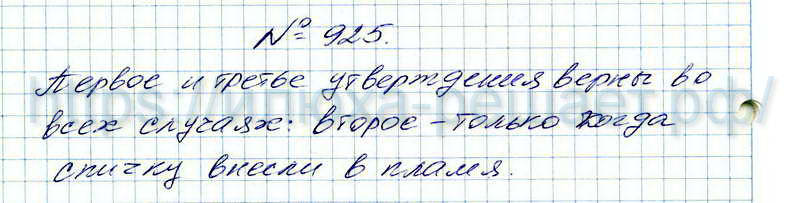 № 925.
Первое и третье утверждения верны во
всех случаях: второе – только когда
спичку внесли в пламя.